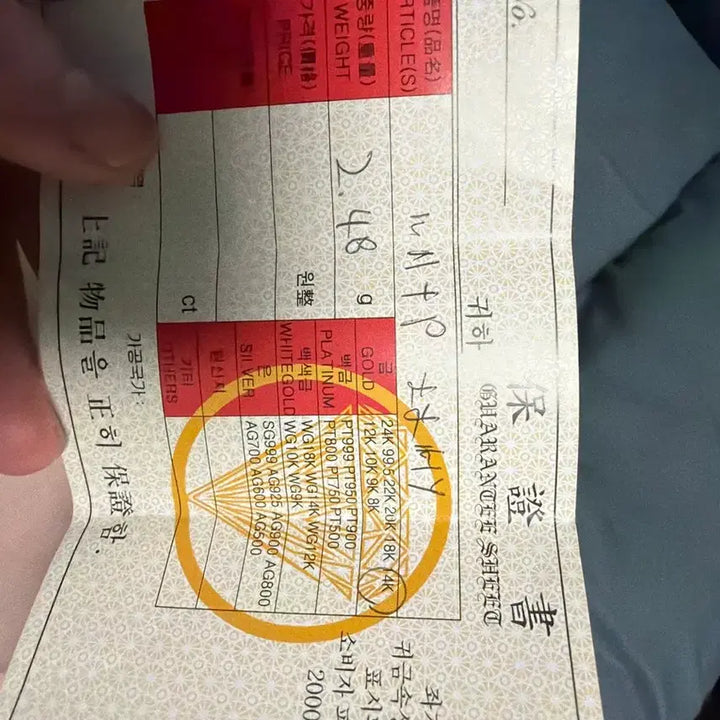 No.
保證書
GUARANTEE SHEET
귀하
품명(品名)
ARTICLE(S)
중량(重量)
WEIGHT
2.48 g
가격(價格)
PRICE
원整
ct
금
GOLD
24K 99.5 22K 20K 18K 14K
12K 10K 9K 8K
백금
PLATINUM
PT999 PT950 PT900
PT800 PT750 PT500
백색금
WHITEGOLD
WG18K WG14K WG12K
WG10K WG9K
은
SILVER
SG999 AG925 AG900 AG800
AG700 AG600 AG500
원산지
기타
OTHERS
가공국가:
上記 物品을 正히 保證함.
귀금속
표시
소비자
2000